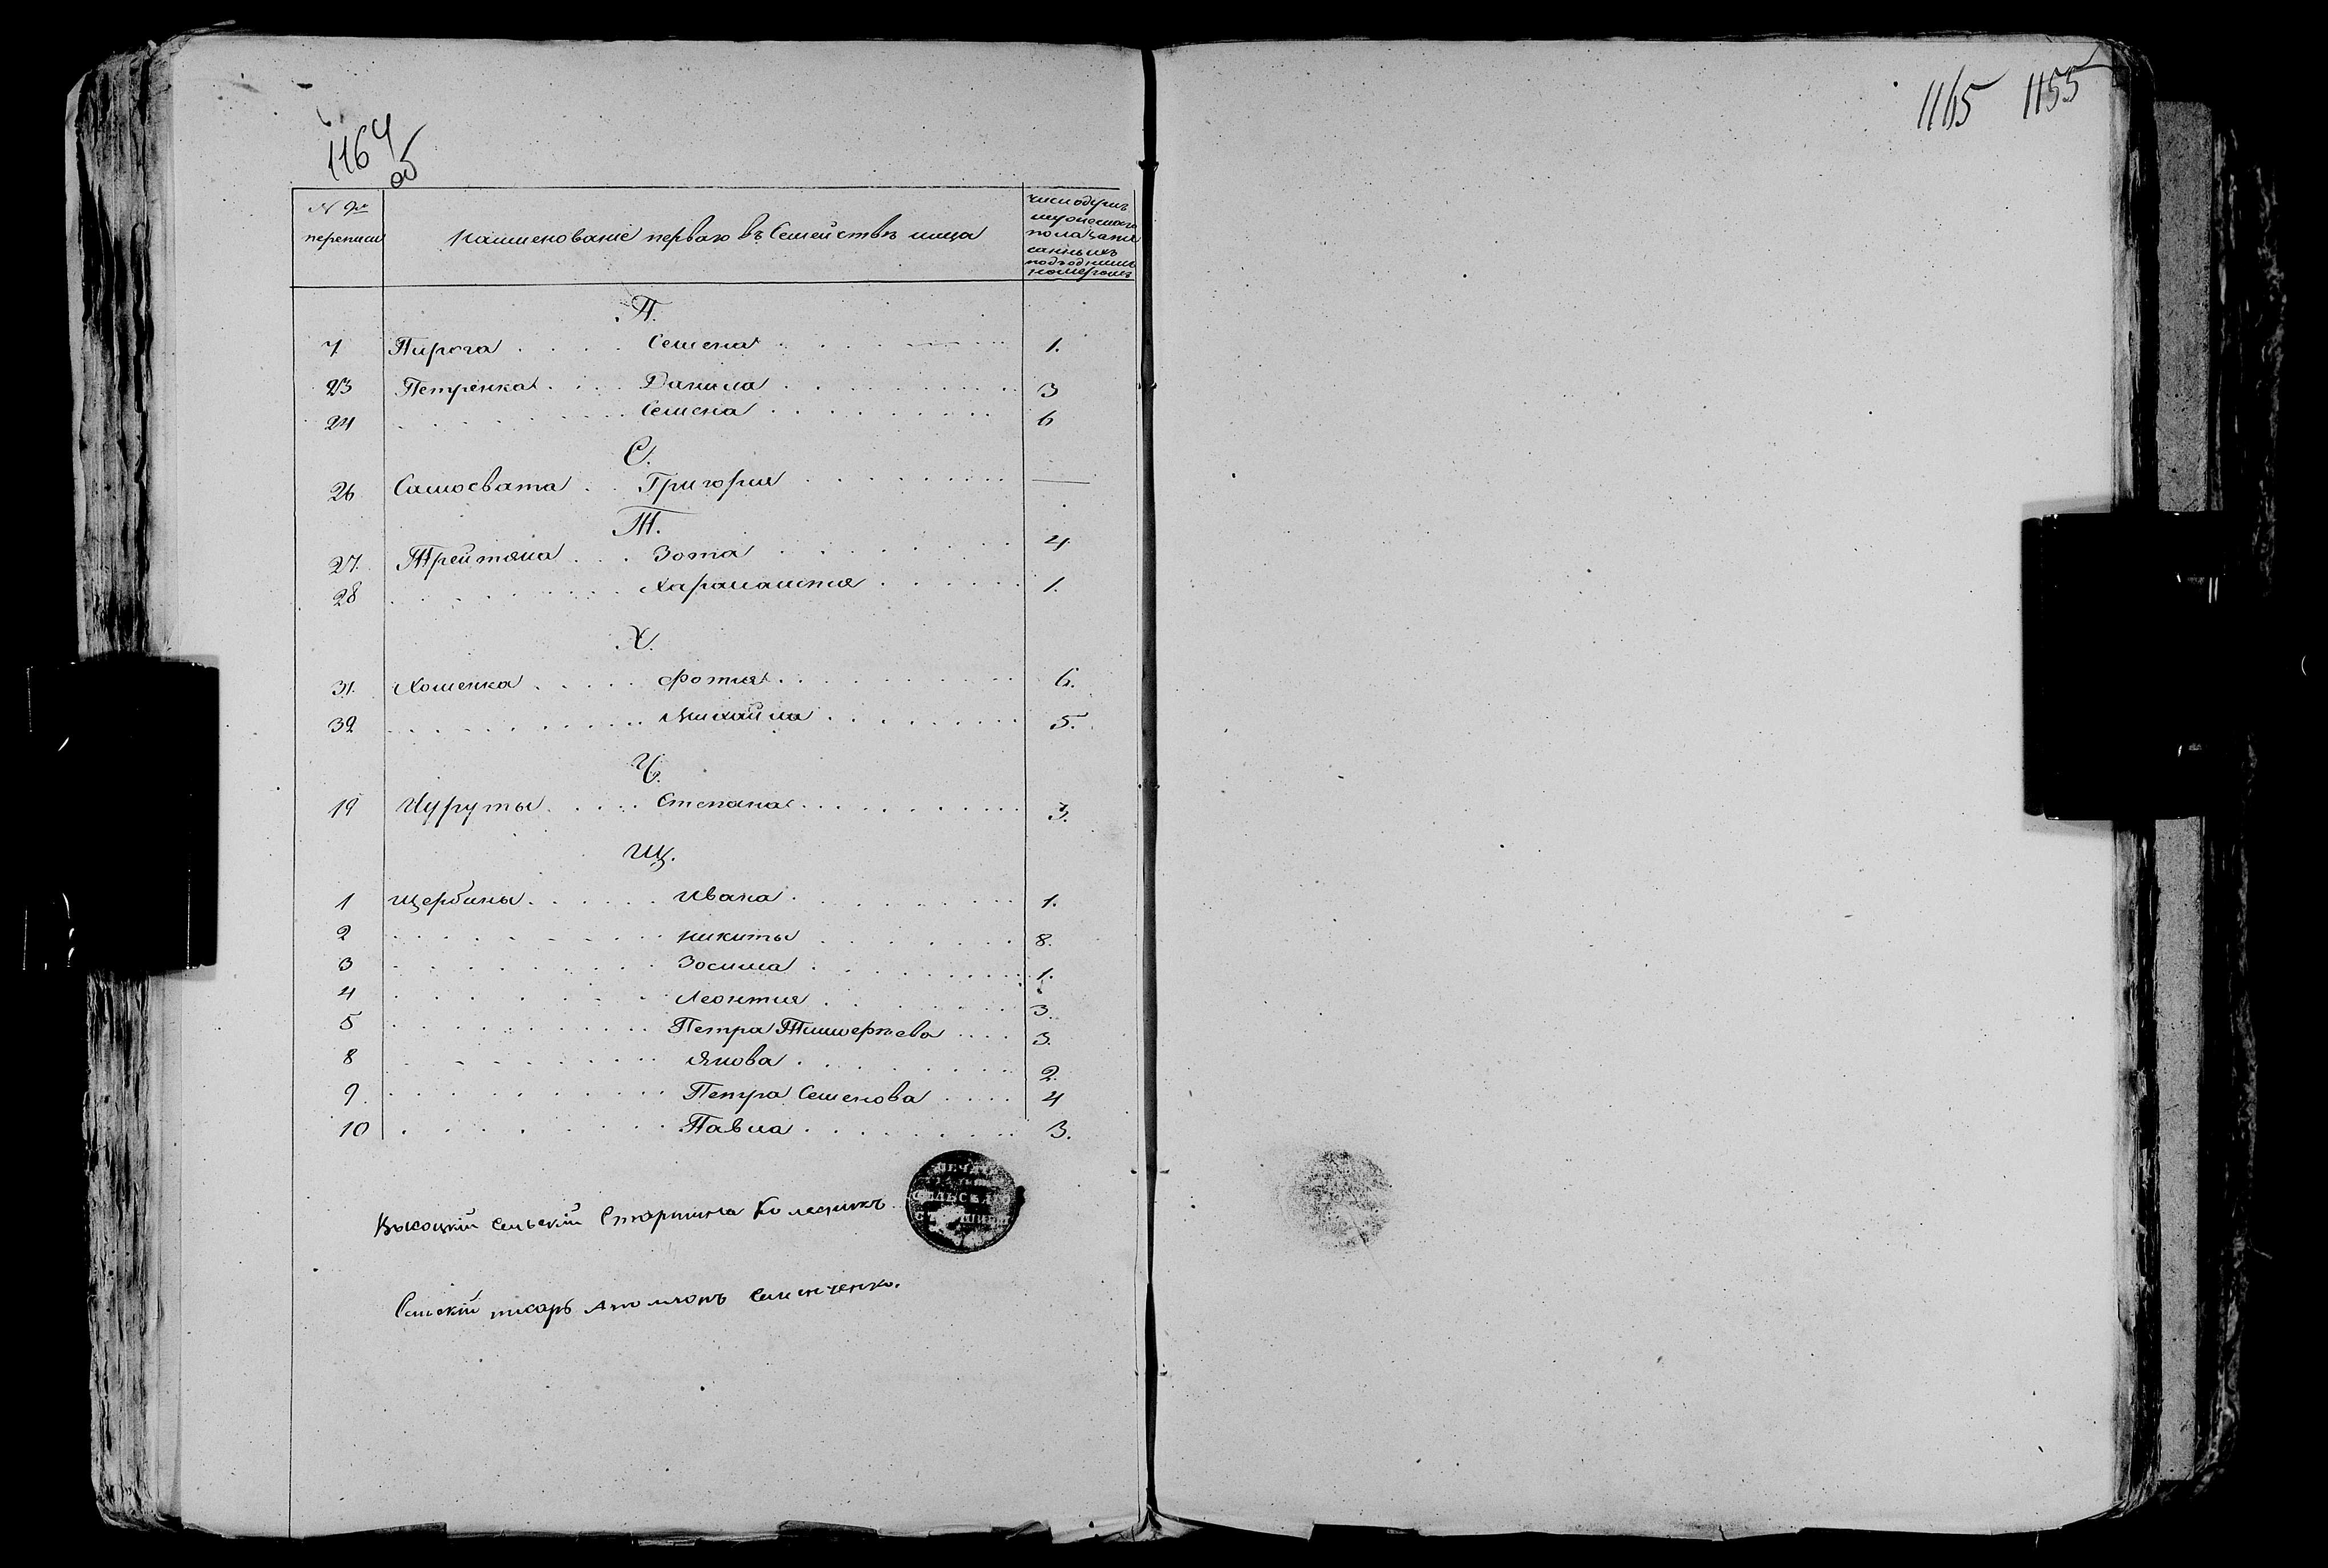 1164
об
1165 1155
№ 9й
переписи
Наименованіе перваго въ Семействѣ лица
число душъ
мужескаго
пола запи
санныхъ
подъ однимъ
номеромъ
П.
7 Пирога . . . . Семена . . . . 1.
23 Петренка . . . . Данила . . . . 3
24 . . . . Семена . . . . 6
С.
26 Самосвата . . Григорія . . . . —
Т.
27. Трейтяка . . . Зота . . . . 4
28 . . . . Харлампія . . . . 1.
Х.
31. Хоменка . . . . Фотія . . . . 6.
32 . . . . Михайла . . . . 5.
Ч.
19 Чуруты . . . . Степана . . . . 3.
Щ.
1 Щербины . . . . Ивана . . . . 1.
2 . . . . Никиты . . . . 8.
3 . . . . Зосима . . . . 1.
4 . . . . Леонтія . . . . 3.
5 . . . . Петра . . . . 3.
8 . . . . Якова . . . . 2.
9. . . . . Петра Семенова . . . . 4
10 . . . . Павла . . . . 3.
Высоцкій сельскій Старшина Колесникъ
ПЕЧАТЬ
СЕЛЬСКАГО
Сельскій писарь Семенченко.